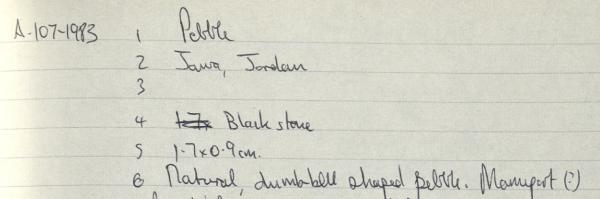 A-107-1983 1 Pebble
2 Jawa, Jordan
3
4 1.7x Black stone
5 1.7x0.9cm.
6 Natural, dumb-bell shaped pebble. Manuport (?)